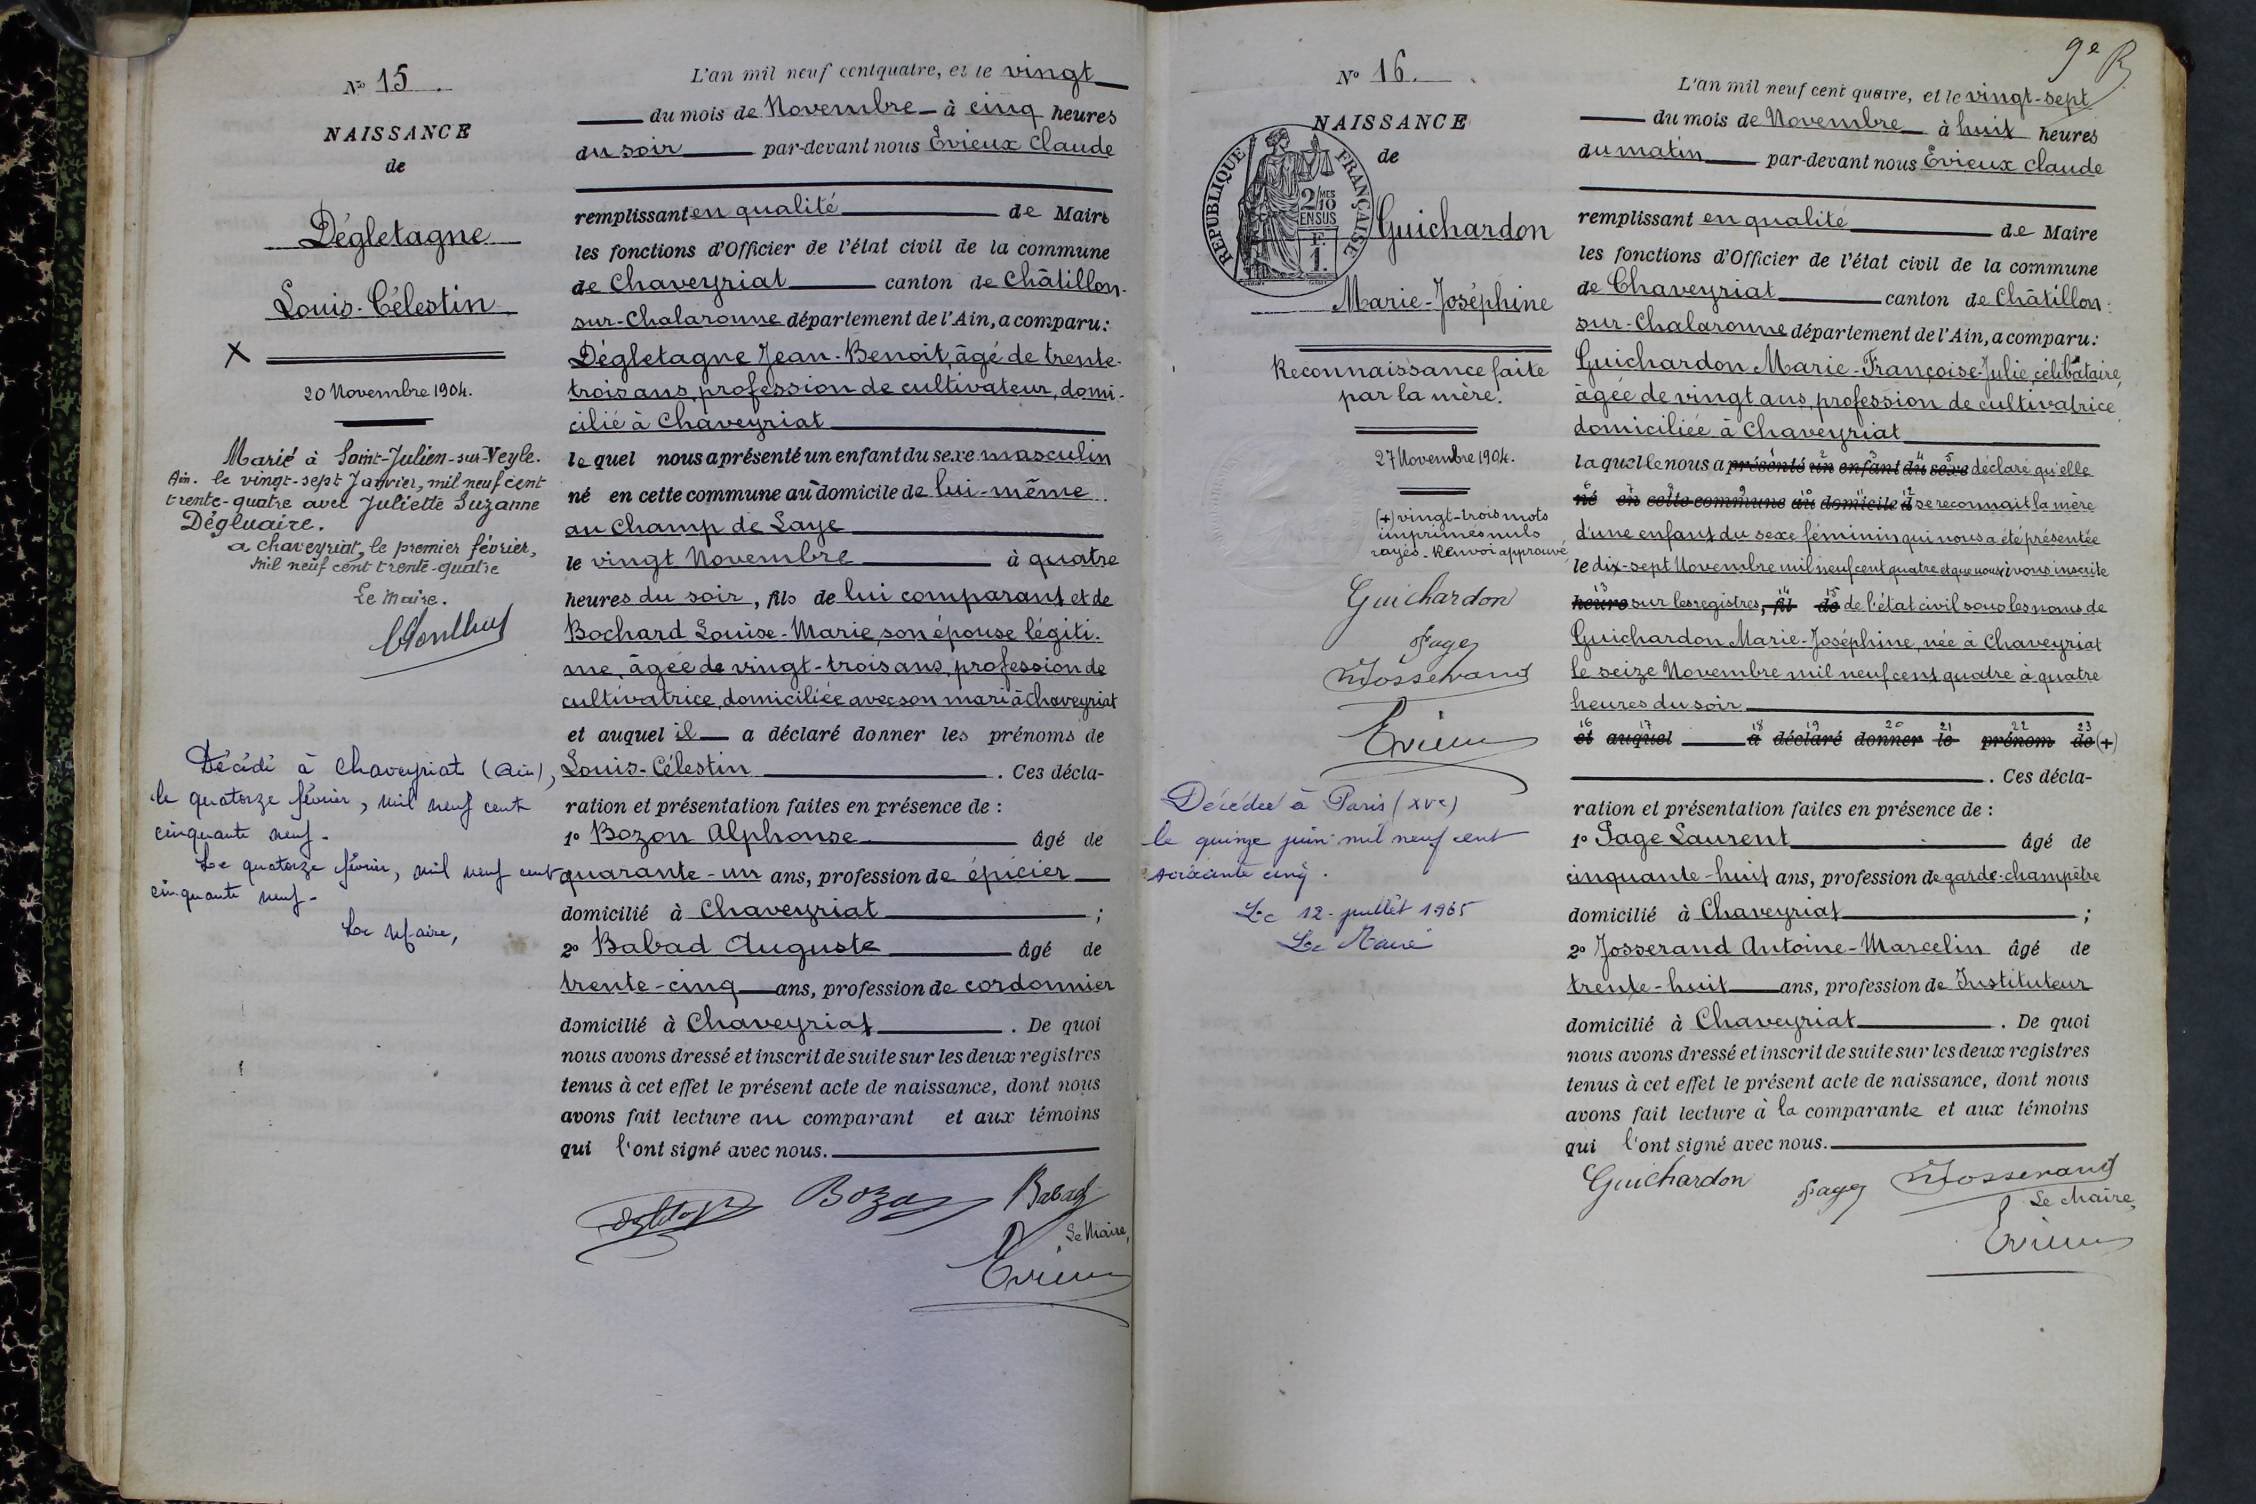 N° 15
NAISSANCE
de
Dégletagne
Louis-Célestin
X
20 Novembre 1904.
Marié à Saint-Julien-sur-Veyle.
Ain. le vingt-sept Janvier, mil neuf cent
trente-quatre avec Juliette Suzanne
Dégluaire.
a chaveyriat, le premier février,
mil neuf cent trente-quatre
Le Maire.
Décédé à Chaveyriat (Ain),
le quatorze février, mil neuf cent
cinquante neuf.
Le quatorze février, mil neuf cent
cinquante neuf.
Le Maire,
L'an mil neuf cent quatre, et le vingt
du mois de Novembre à cinq heures
du soir par-devant nous Evieux Claude
remplissant en qualité de Maire
les fonctions d'Officier de l'état civil de la commune
de Chaveyriat canton de Châtillon-
sur-Chalaronne département de l'Ain, a comparu:
Dégletagne Jean-Benoit, âgé de trente-
trois ans, profession de cultivateur, domi-
cilié à Chaveyriat
lequel nous a présenté un enfant du sexe masculin
né en cette commune au domicile de lui-même
au Champ de Laye
le vingt Novembre à quatre
heures du soir, fils de lui comparant et de
Bochard Louise-Marie, son épouse légiti-
me, âgée de vingt-trois ans, profession de
cultivatrice, domiciliée avec son mari à Chaveyriat
et auquel il a déclaré donner les prénoms de
Louis-Célestin. Ces décla-
ration et présentation faites en présence de :
1° Bozon Alphonse âgé de
quarante-un ans, profession de épicier
domicilié à Chaveyriat ;
2° Babad Auguste âgé de
trente-cinq ans, profession de cordonnier
domicilié à Chaveyriat. De quoi
nous avons dressé et inscrit de suite sur les deux registres
tenus à cet effet le présent acte de naissance, dont nous
avons fait lecture au comparant et aux témoins
qui l'ont signé avec nous.
Bozon Babad
Le Maire,
Evieux
9e B
N° 16.
NAISSANCE
de
RÉPUBLIQUE FRANÇAISE
2/10 MES
EN SUS
F.
1.
Guichardon
Marie-Joséphine
Reconnaissance faite
par la mère.
27 Novembre 1904.
(+) vingt-trois mots
imprimés nuls
rayés. Renvoi approuvé,
Guichardon
Page
Josserand
Evieux
Décédée à Paris (XVe)
le quinze juin mil neuf cent
soixante cinq.
Le 12 juillet 1965
Le Maire
L'an mil neuf cent quatre, et le vingt-sept
du mois de Novembre à huit heures
du matin par-devant nous Evieux Claude
remplissant en qualité de Maire
les fonctions d'Officier de l'état civil de la commune
de Chaveyriat canton de Châtillon-
sur-Chalaronne département de l'Ain, a comparu:
Guichardon Marie-Françoise-Julie, célibataire,
âgée de vingt ans, profession de cultivatrice
domiciliée à Chaveyriat
laquelle nous a présenté un enfant du sexe déclaré qu'elle
né en cette commune au domicile d se reconnait la mère
d'une enfant du sexe féminin qui nous a été présentée
le dix-sept Novembre mil neuf cent quatre et que nous avons inscrite
heure sur les registres, fil de de l'état civil sous les noms de
Guichardon Marie-Joséphine, née à Chaveyriat
le seize Novembre mil neuf cent quatre à quatre
heures du soir
16 17 18 19 20 21 22 23
et auquel a déclaré donner le prénom de (+)
. Ces décla-
ration et présentation faites en présence de :
1° Page Laurent âgé de
cinquante-huit ans, profession de garde-champêtre
domicilié à Chaveyriat ;
2° Josserand Antoine-Marcelin âgé de
trente-huit ans, profession de Instituteur
domicilié à Chaveyriat. De quoi
nous avons dressé et inscrit de suite sur les deux registres
tenus à cet effet le présent acte de naissance, dont nous
avons fait lecture à la comparante et aux témoins
qui l'ont signé avec nous.
Guichardon Page Josserand
Le Maire,
Evieux